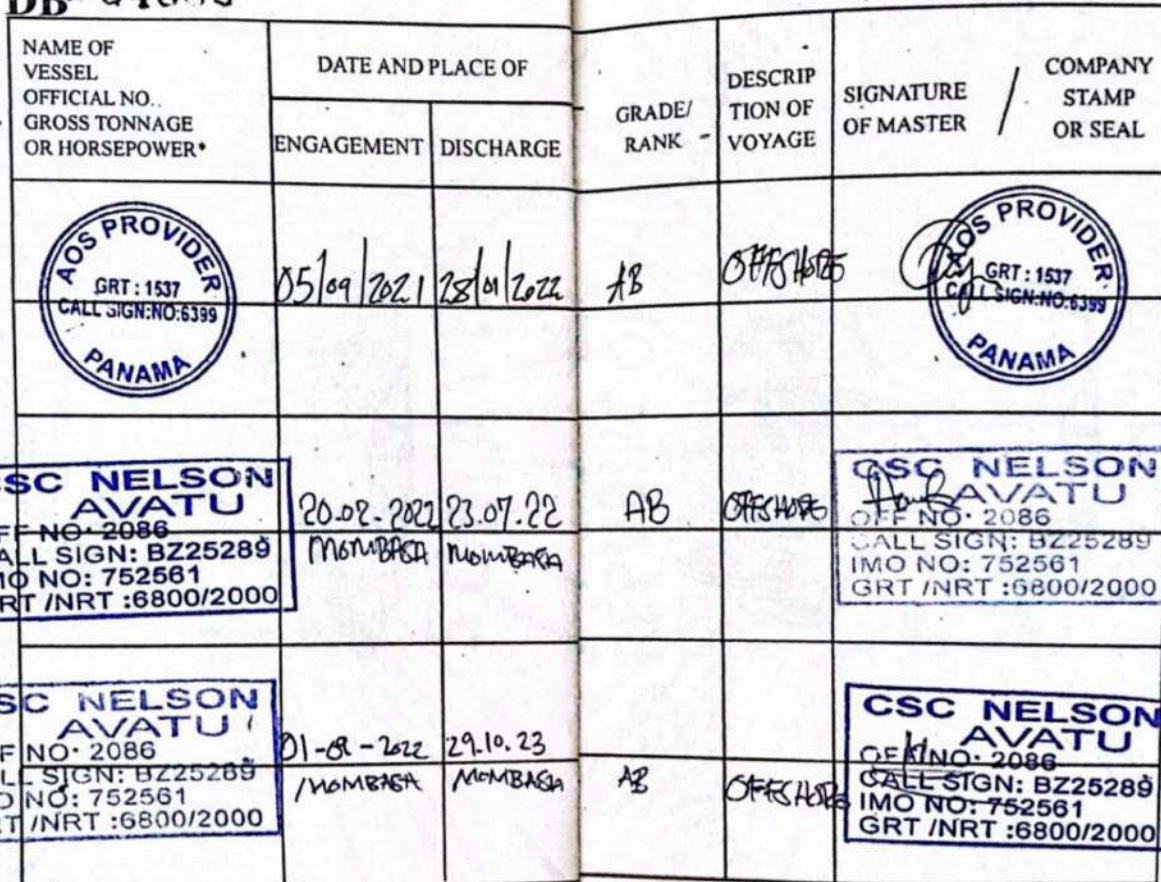 DB
NAME OF
VESSEL
OFFICIAL NO..
GROSS TONNAGE
OR HORSEPOWER*
DATE AND PLACE OF
ENGAGEMENT
DISCHARGE
GRADE/
RANK
DESCRIP
TION OF
VOYAGE
SIGNATURE
OF MASTER
/
COMPANY
STAMP
OR SEAL
AOS PROVIDER
GRT : 1537
CALL SIGN:NO:6399
PANAMA
05/09/2021
28/01/2022
AB
OFFSHORE
AOS PROVIDER
GRT : 1537
CALL SIGN:NO:6399
PANAMA
SC NELSON
AVATU
FF NO· 2086
ALL SIGN: BZ25289
MO NO: 752561
RT /NRT :6800/2000
20.02.2022
MOMBASA
23.07.22
MOMBASA
AB
OFFSHORE
CSC NELSON
AVATU
OFF NO· 2086
CALL SIGN: BZ25289
IMO NO: 752561
GRT /NRT :6800/2000
SC NELSON
AVATU
F NO· 2086
LL SIGN: BZ25289
O NO: 752561
T /NRT :6800/2000
2022
MOMBASA
29.10.23
MOMBASA
AB
OFFSHORE
CSC NELSON
AVATU
OFF NO· 2086
CALL SIGN: BZ25289
IMO NO: 752561
GRT /NRT :6800/2000